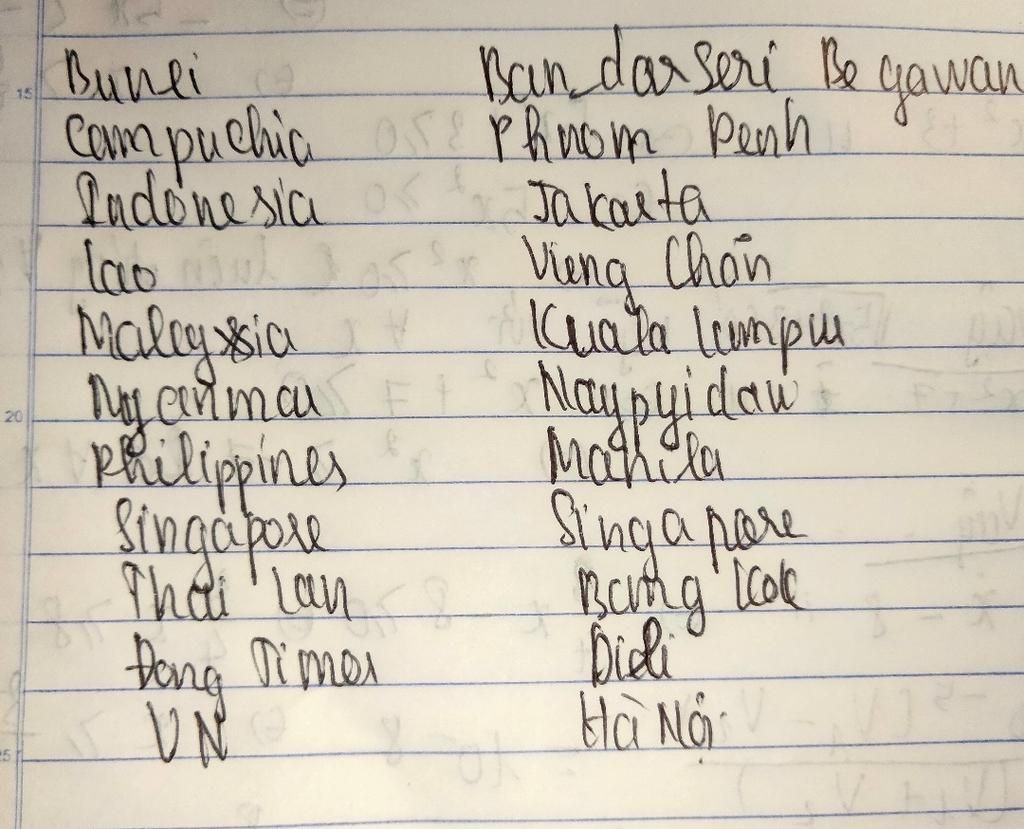 Bunei Bandar Seri Be gawan
Campuchia Phnom Penh
Indonesia Jakarta
Lao Viêng Chăn
Malaysia Kuala lumpu
Myanma Naypyidaw
Philippines Manila
Singapore Singapore
Thái Lan Băng Kok
Đông Timor Dili
VN Hà Nội
15
20
25